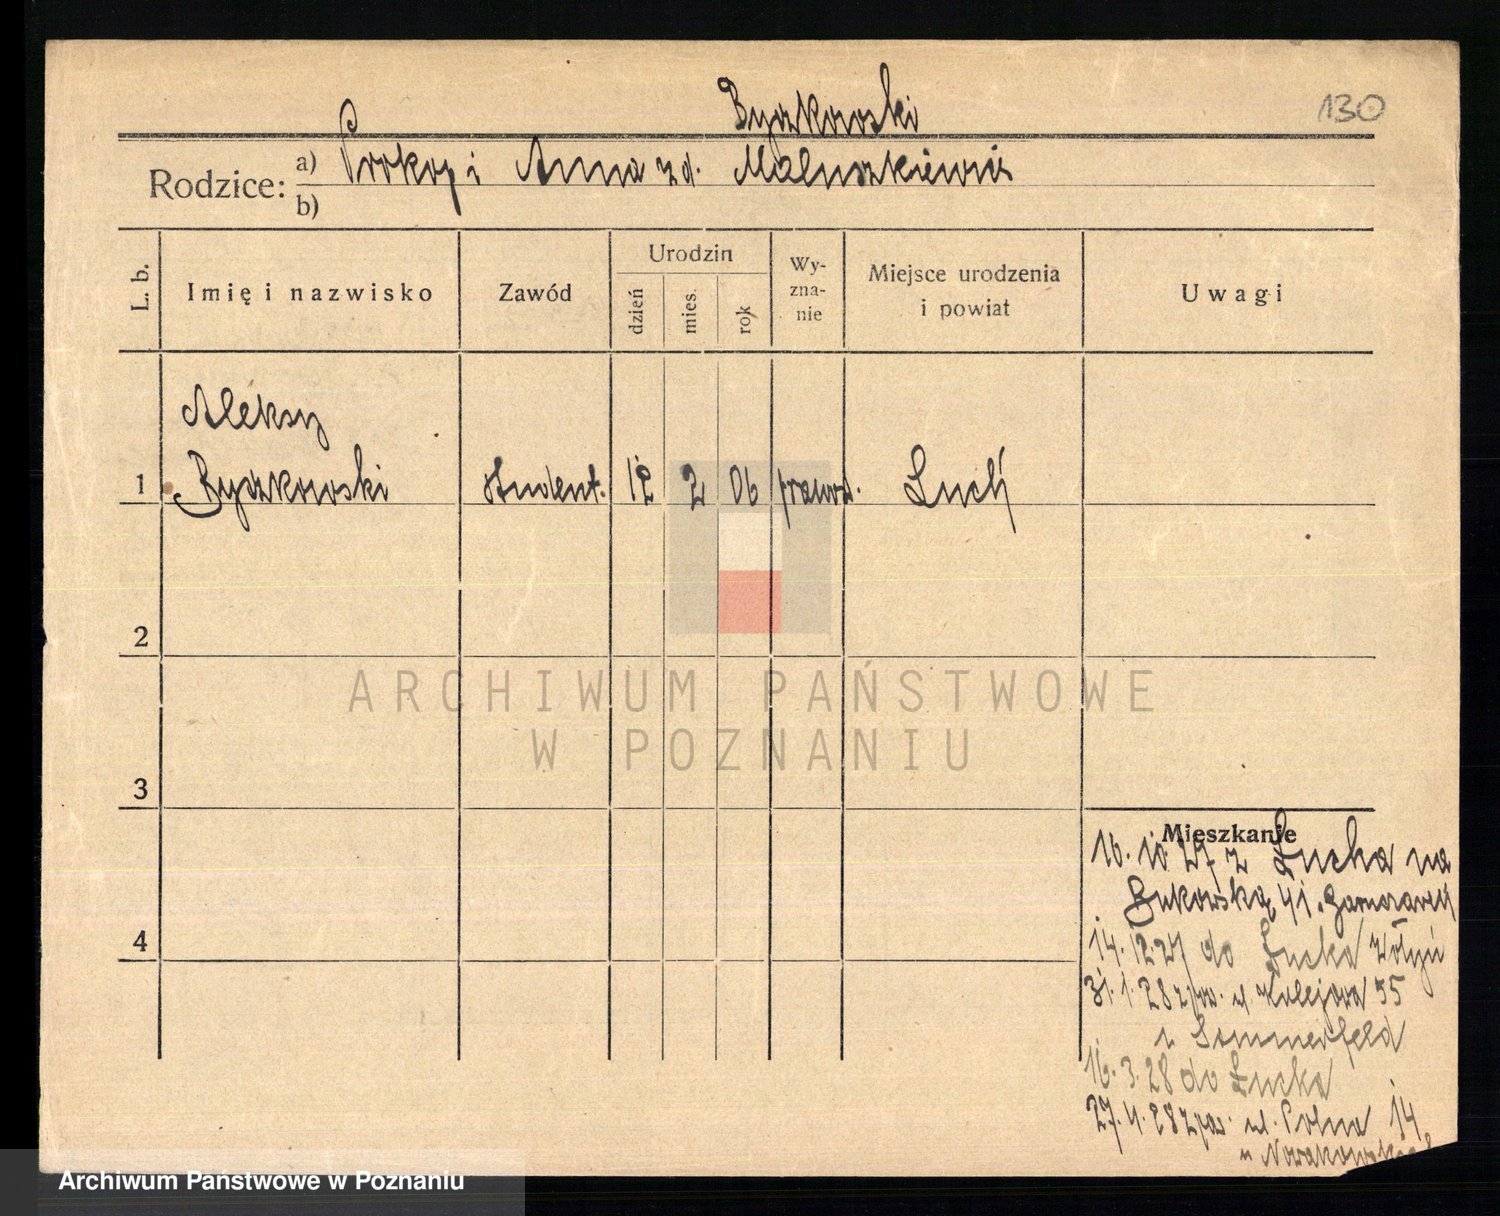 130
Byszkowski
Rodzice: a) Prokop i Anna z d. Maluszkiewicz
b)
L. b. Imię i nazwisko Zawód Urodzin dzień mies. rok Wy-zna-nie Miejsce urodzenia i powiat Uwagi
Aleksy
1 Byszkowski student. 12 2 06 prawosł. Łuck
2
ARCHIWUM PAŃSTWOWE
W POZNANIU
3
Mieszkanie
16. 10 27 z Łucka na
Bukowską 41.
14. 12. 27 do Łucka Wołyń
31. 1. 28 ul. Kolejowa 55
u Sommerfeld
4
16. 3. 28 do Łucka
27. 4. 28 ul. Polna 14
u
Archiwum Państwowe w Poznaniu